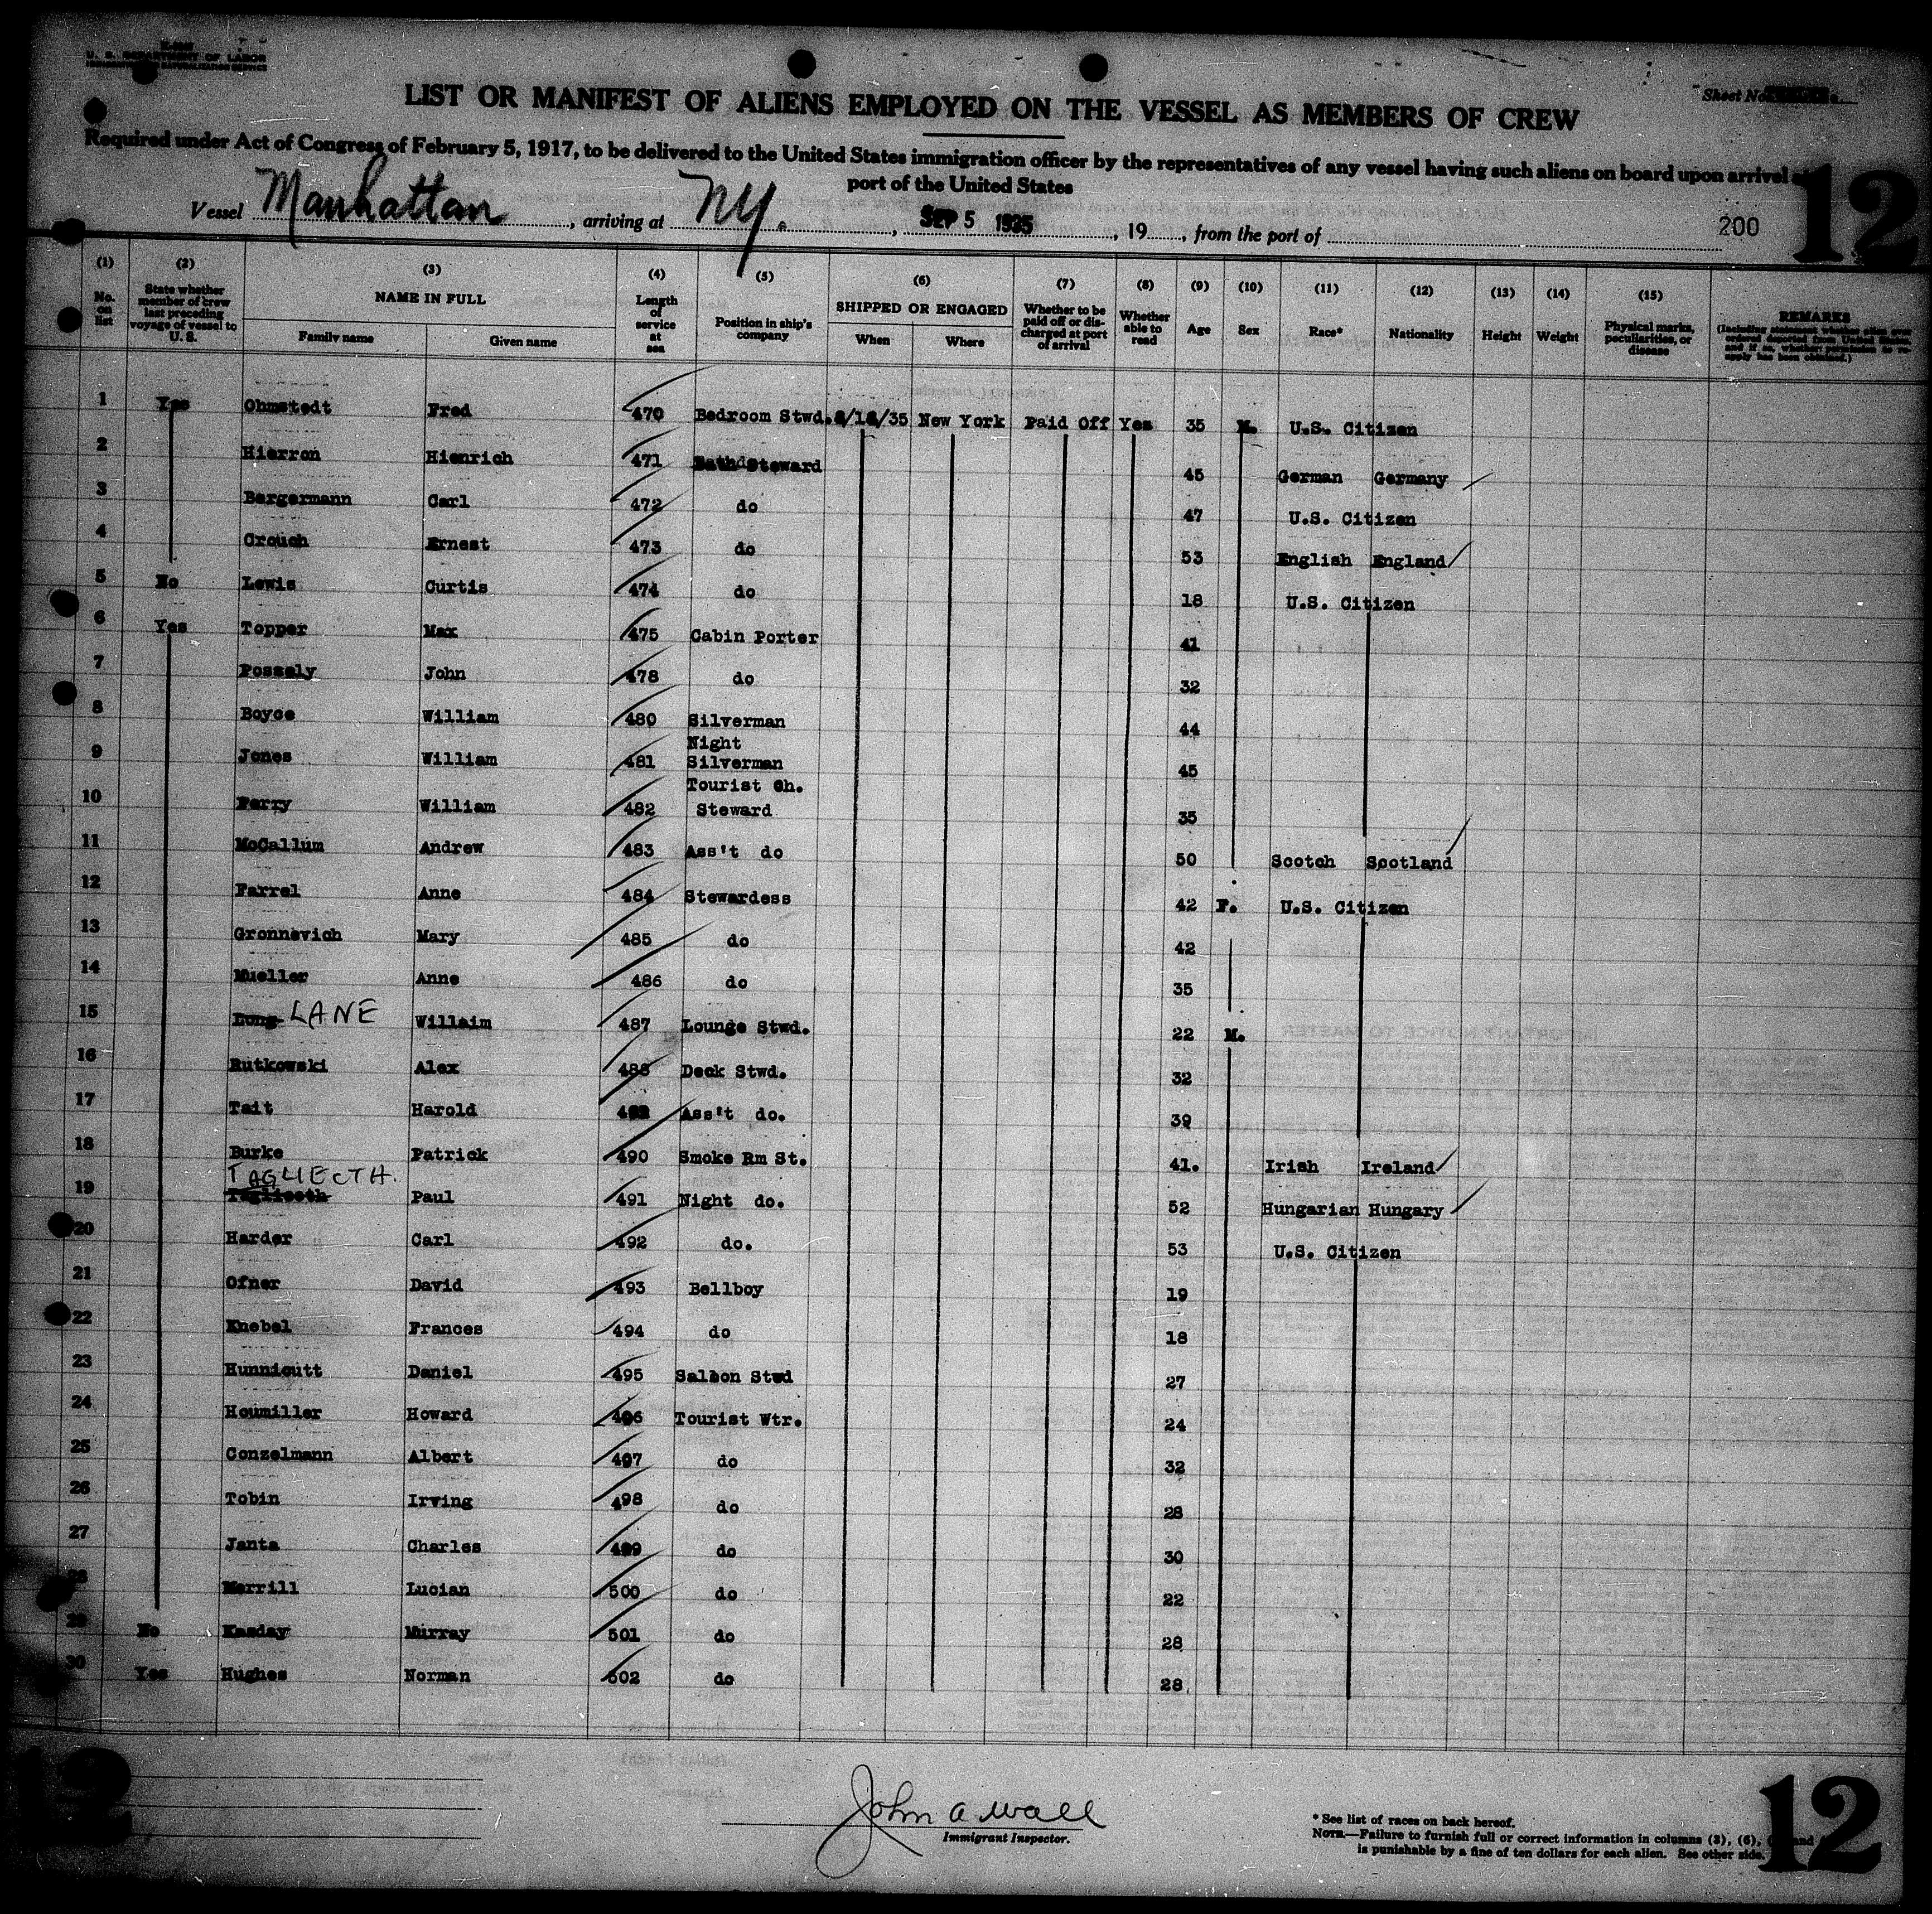 U. S. DEPARTMENT OF LABOR
Sheet No.
LIST OR MANIFEST OF ALIENS EMPLOYED ON THE VESSEL AS MEMBERS OF CREW
Required under Act of Congress of February 5, 1917, to be delivered to the United States immigration officer by the representatives of any vessel having such aliens on board upon arrival
port of the United States
12
Vessel Manhattan, arriving at NY., SEP 5 1935, 19, from the port of 200
(1) (2) (3) (4) (5) (6) (7) (8) (9) (10) (11) (12) (13) (14) (15)
No. on list State whether member of crew last preceding voyage of vessel to U. S. NAME IN FULL Family name Given name Length of service at sea Position in ship's company SHIPPED OR ENGAGED When Where Whether to be paid off or discharged at port of arrival Whether able to read Age Sex Race* Nationality Height Weight Physical marks, peculiarities, or disease REMARKS (Including statement whether alien ever ordered deported from United States, and if so, whether permission to reapply has been obtained.)
1 Yes Ohmstedt Fred 470 Bedroom Stwd. New York Paid Off Yes 35 M. U.S. Citizen
2 Hierron Hienrich 471 Bath Steward 45 German Germany
3 Bergermann Carl 472 do 47 U.S. Citizen
4 Crouch Ernest 473 do 53 English England
5 No Lewis Curtis 474 do 18 U.S. Citizen
6 Yes Topper Max 475 Cabin Porter 41
7 Possely John 478 do 32
8 Boyce William 480 Silverman 44
9 Jones William 481 Night Silverman 45
10 Perry William 482 Tourist Ch. Steward 35
11 McCallum Andrew 483 Ass't do 50 Scotch Scotland
12 Farrel Anne 484 Stewardess 42 F. U.S. Citizen
13 Gronnevich Mary 485 do 42
14 Mueller Anne 486 do 35
15 Long LANE Willaim 487 Lounge Stwd. 22 M.
16 Rutkowski Alex 488 Deck Stwd. 32
17 Tait Harold Ass't do. 39
18 Burke Patrick 490 Smoke Rm St. 41. Irish Ireland
TAGLIECTH.
19 Paul 491 Night do. 52 Hungarian Hungary
20 Harder Carl 492 do. 53 U.S. Citizen
21 Ofner David 493 Bellboy 19
22 Knebel Frances 494 do 18
23 Hunnicutt Daniel 495 Saloon Stwd 27
24 Houmiller Howard 496 Tourist Wtr. 24
25 Conzelmann Albert 497 do 32
26 Tobin Irving 498 do 28
27 Janta Charles 499 do 30
28 Merrill Lucian 500 do 22
29 No Kasday Murray 501 do 28
30 Yes Hughes Norman 502 do 28
12
John A Wall
Immigrant Inspector.
* See list of races on back hereof.
NOTE.—Failure to furnish full or correct information in columns (3), (6), and
is punishable by a fine of ten dollars for each alien. See other side.
12